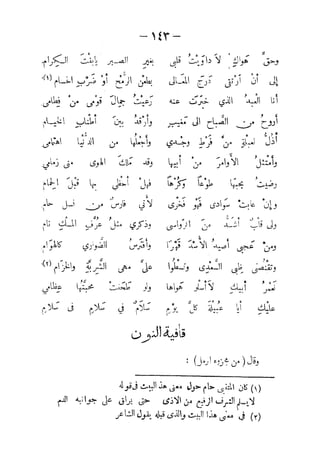 — ١٤٣ —
وحقِّ هواكِ لا داويْتُ قلبي بغيرِ الصبر يا بنْتَ الكرام
إلى أنْ أرْتقى دَرجَ المعالى بطعْنِ الرُّمحِ أوْ ضَرْبِ الحسام (١)
أنا العبدُ الذى خبّرْت عنه رَعيْتُ جِمالَ قومى منْ فِطامى
أروحُ من الصَّباحِ الى مَغيبٍ وأرْقدُ بينَ أطنابِ الخيامِ
أذلُّ لعبلةٍ منْ فَرْطِ وجْدى وأجْعلُها من الدُّنيا اهتمامى
وأمْتثلُ الأوامرَ منْ أبيها وقد مَلكَ الهوى منى زمامى
رضيتُ بحبّها طوْعًا وكرْهًا فهلْ أحْظى بها قبْلَ الحِمام
وإنْ عابتْ سوادى فهْوَ فخْرى لأنى فارسٌ من نسل حام
ولى قلْبٌ أشَدُّ منَ الرّواسى وذكرى مثلُ عَرْفِ المسْكِ نام
ومنْ عَجبى أصيدُ الأُسْدَ قَهْرًا وأفترِسُ الضَّوارى كالهوَام
وتقْنُصنى ظبى السَّعْدِى وتسْطُو علىَّ مهى الشَّرَبَّةِ والخزام (٢)
لعَمْرُ أبيكِ لا أسْلو هَواها ولو طحَنتْ محبَّتُها عِظامى
عليْكِ أيا عُبيلةُ كلَّ يوْمٍ سَلامٌ فى سَلامٍ فى سَلامِ
قافية النون
وقال ( من مجزوء الرمل ) :
(١) كان المتنبى حام حول معنى هذا البيت فى قوله
لا يسلم الشرف الرفيع من الاذى حتى يراق على جوانبه الدم
(٢) فى معنى هذا البيت والذى قبله يقول الشاعر